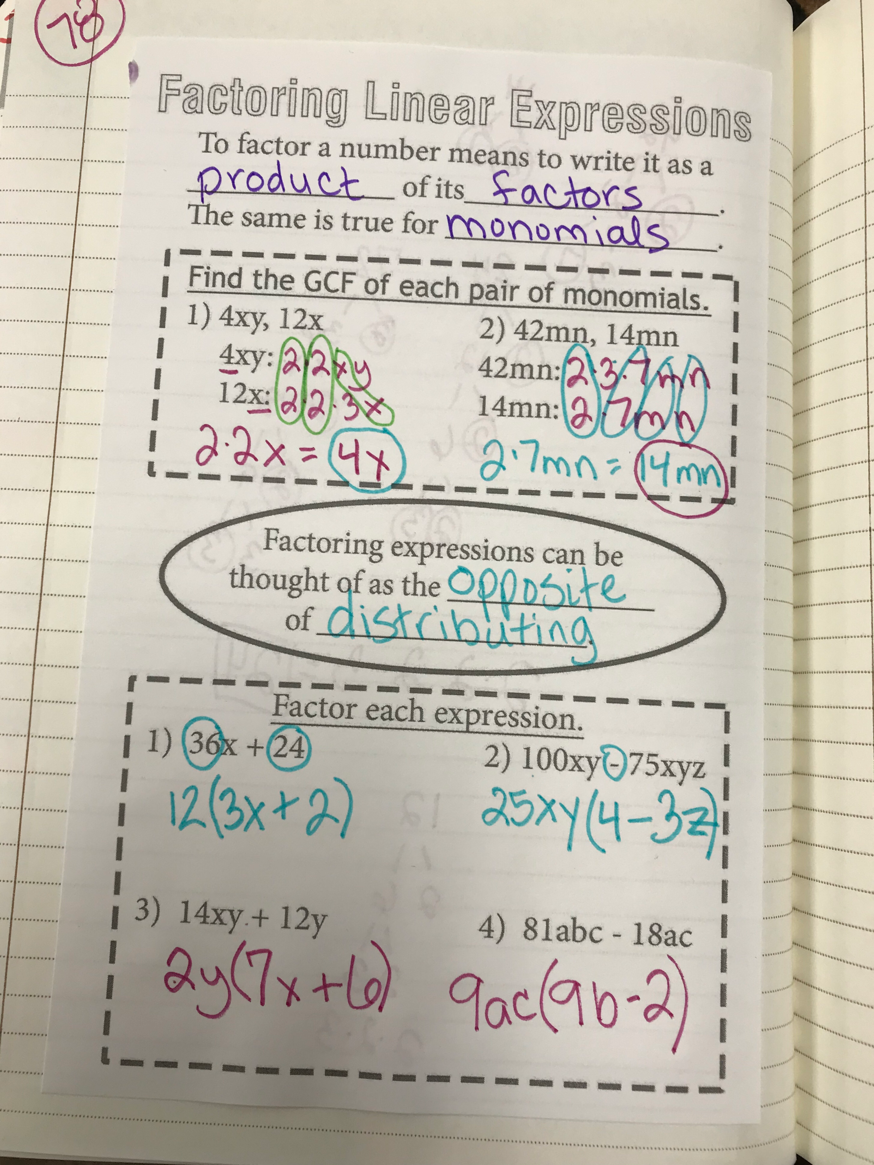 78
Factoring Linear Expressions
To factor a number means to write it as a
product of its factors.
The same is true for monomials.
Find the GCF of each pair of monomials.
1) 4xy, 12x
4xy: 2 2 x y
12x: 2 · 2 · 3 x
2·2x = 4x
2) 42mn, 14mn
42mn: 2·3·7mn
14mn: 2·7mn
2·7mn = 14mn
Factoring expressions can be
thought of as the opposite
of distributing.
Factor each expression.
1) 36x + 24
12(3x+2)
2) 100xy - 75xyz
25xy(4-3z)
3) 14xy + 12y
2y(7x+6)
4) 81abc - 18ac
9ac(9b-2)